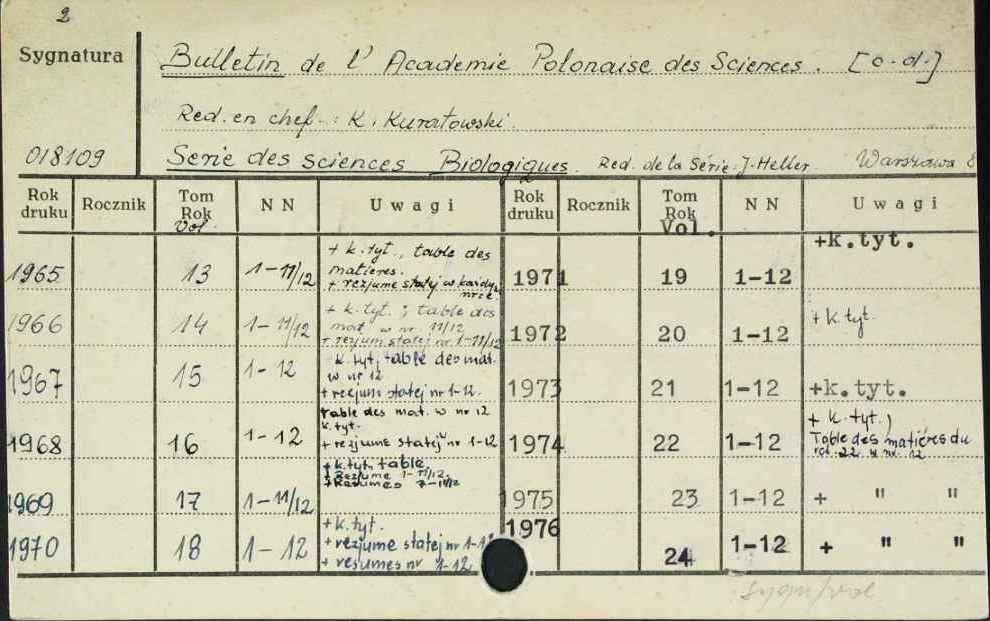 2
Sygnatura
Bulletin de l' Academie Polonaise des Sciences. [c.d.]
Red. en chef : K. Kuratowski.
018109
Serie des sciences Biologiques. Red. de la Serie: J. Heller Warszawa 8
Rok druku Rocznik Tom Rok Vol. NN Uwagi Rok druku Rocznik Tom Rok Vol. NN Uwagi
1965 13 1-11/12 + k. tyt., table des matieres. + rezjume statej w każdym nrze
1971 19 1-12 +k.tyt.
1966 14 1-11/12 + k. tyt.; table des mat. w nr. 11/12 + rezjum statej nr 1-11/12
1972 20 1-12 + k. tyt.
1967 15 1-12 k. tyt, table des mat. w nr 12 + rezjum statej nr 1-12.
1973 21 1-12 +k.tyt.
1968 16 1-12 table des mat. w nr 12 k. tyt. + rezjume statej nr 1-12
1974 22 1-12 + k. tyt., Table des matiéres du vol. 22 w nr. 12
1969 17 1-11/12 + k. tyt, table. + Rezjume 1-11/12 + Resumes
1975 23 1-12 + " "
1970 18 1-12 + k. tyt. + rezjume statej nr 1-12 + resumes nr 1-12
1976 24 1-12 + " "